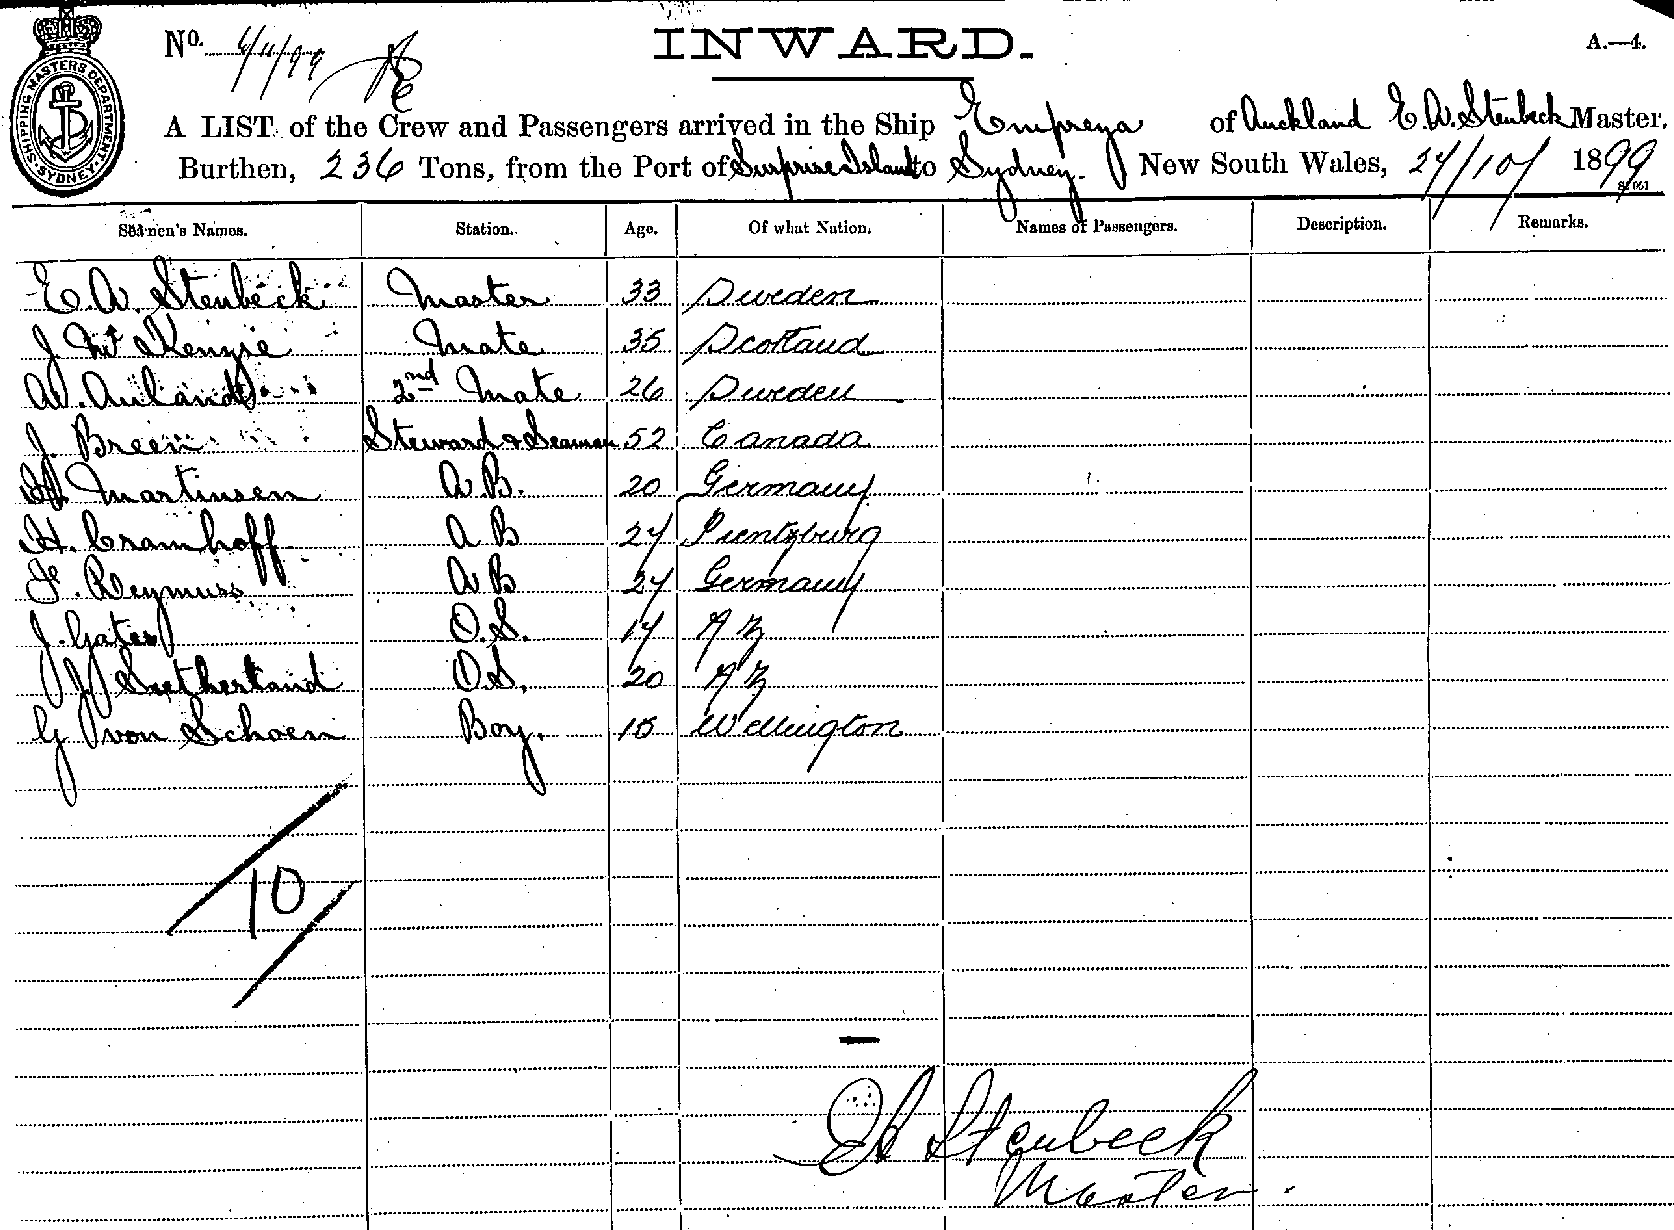 No. 6/11/99
INWARD.
A.—4.
SHIPPING MASTERS DEPARTMENT. SYDNEY.
A LIST of the Crew and Passengers arrived in the Ship Empreza of Auckland E. A. Stenbeck Master,
Burthen, 236 Tons, from the Port of Surprise Island to Sydney. New South Wales, 27/10/ 1899
Seamen's Names. Station. Age. Of what Nation. Names of Passengers. Description. Remarks.
E. A. Stenbeck Master 33 Sweden
J McKenzie Mate 35 Scotland
A. Auland 2nd Mate 26 Sweden
J. Breen Steward & Seaman 52 Canada
Martinsen A B. 20 Germany
H. Cramhoff A B 27
F. Reymuss A B 27 Germany
J. Gates O.S. 17 N Z
J. Sutherland O.S. 20 N Z
G von Schoen Boy. Wellington
10
EA Stenbeck
Master.